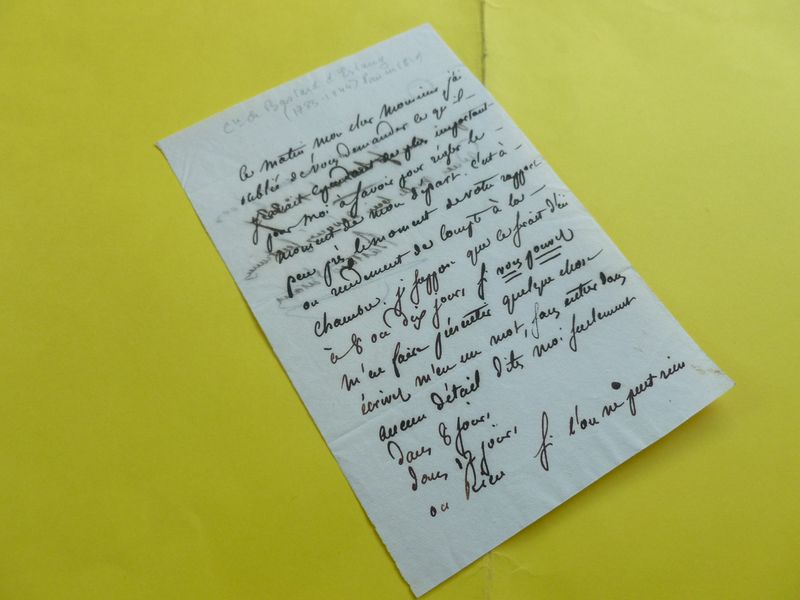 Cte de Bastard d'Estang
(1783-1844) Pair en 1819
ce matin mon cher monsieur j'ai
oublié de vous demander ce qu'il
y avait cependant de plus important
pour moi à savoir pour régler le
moment de mon départ. c'est à
peu près le moment de votre rapport
ou rendement de compte à la
chambre. je suppose que ce serait d'ici
à 8 ou dix jours si vous pouvez
m'en faire pressentir quelque chose
écrivez m'en un mot, sans entrer dans
aucun détail dites moi seulement
dans 8 jours,
dans jours,
ou Rien si l'on ne peut rien